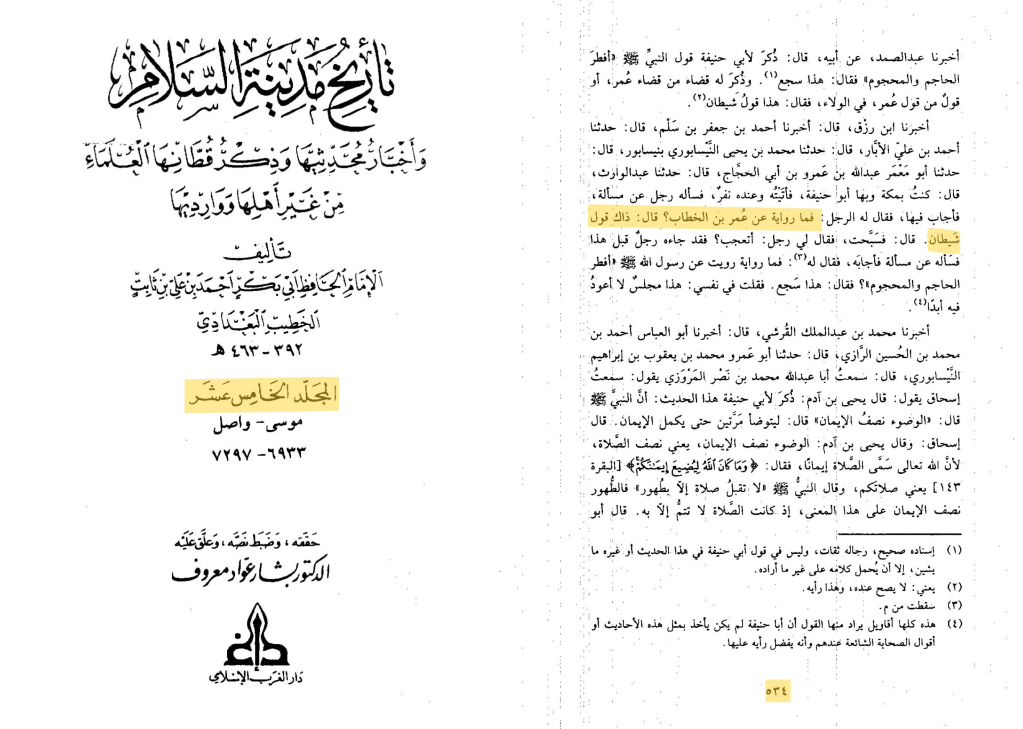 تاريخ مدينة السلام
وأخبار محدثيها وذكر قطانها العلماء
من غير أهلها ووارديها
تأليف
الإمام الحافظ أبي بكر أحمد بن علي بن ثابت
الخطيب البغدادي
٣٩٢ - ٤٦٣ هـ
المجلد الخامس عشر
موسى - واصل
٦٩٣٣ - ٧٢٩٧
حققه، وضبط نصه، وعلق عليه
الدكتور بشار عواد معروف
دار الغرب الإسلامي
أخبرنا عبدالصمد، عن أبيه، قال: ذُكرَ لأبي حنيفة قول النبيِّ ﷺ «أفطرَ
الحاجم والمحجوم» فقال: هذا سجع(١). وذُكرَ له قضاء من قضاء عُمر، أو
قولٌ من قول عُمر، في الولاء، فقال: هذا قولُ شَيطان(٢).
أخبرنا ابن رزْق، قال: أخبرنا أحمد بن جعفر بن سَلْم، قال: حدثنا
أحمد بن عليّ الأبَّار، قال: حدثنا محمد بن يحيى النَّيْسابوري بنيسابور، قال:
حدثنا أبو مَعْمَر عبدالله بن عَمرو بن أبي الحجَّاج، قال: حدثنا عبدالوارث،
قال: كنتُ بمكة وبها أبو حنيفة، فأتَيْتُه وعنده نفرٌ، فسأله رجل عن مسألة،
فأجاب فيها، فقال له الرجل: فما رواية عن عُمر بن الخطاب؟ قال: ذاك قول
شَيطان. قال: فسَبَّحت، فقال لي رجل: أتعجب؟ فقد جاءه رجلٌ قبل هذا
فسأله عن مسألة فأجابَه، فقال له(٣): فما رواية رويت عن رسول الله ﷺ «أفطر
الحاجم والمحجوم»؟ فقال: هذا سَجع. فقلت في نفسي: هذا مجلسٌ لا أعودُ
فيه أبدًا(٤).
أخبرنا محمد بن عبدالملك القُرشي، قال: أخبرنا أبو العباس أحمد بن
محمد بن الحُسين الرَّازي، قال: حدثنا أبو عَمرو محمد بن يعقوب بن إبراهيم
النَّيْسابوري، قال: سمعتُ أبا عبدالله محمد بن نَصْر المَرْوَزي يقول: سمعتُ
إسحاق يقول: قال يحيى بن آدم: ذُكرَ لأبي حنيفة هذا الحديث: أنَّ النبيَّ ﷺ
قال: «الوضوء نصفُ الإيمان» قال: ليتوضأ مَرَّتين حتى يكمل الإيمان. قال
إسحاق: وقال يحيى بن آدم: الوضوء نصف الإيمان، يعني نصف الصَّلاة،
لأنَّ الله تعالى سَمَّى الصَّلاة إيمانًا، فقال: ﴿وَمَا كَانَ اللَّهُ لِيُضِيعَ إِيمَانَكُمْ﴾ [البقرة
١٤٣] يعني صلاتكم، وقال النبيُّ ﷺ «لا تقبلُ صلاة إلاّ بطُهور» فالطُّهور
نصف الإيمان على هذا المعنى، إذ كانت الصَّلاة لا تتمُّ إلاّ به. قال أبو
(١) إسناده صحيح، رجاله ثقات، وليس في قول أبي حنيفة في هذا الحديث أو غيره ما
يشين، إلا أن يُحمل كلامه على غير ما أراده.
(٢) يعني: لا يصح عنده، وهذا رأيه.
(٣) سقطت من م.
(٤) هذه كلها أقاويل يراد منها القول أن أبا حنيفة لم يكن يأخذ بمثل هذه الأحاديث أو
أقوال الصحابة الشائعة عندهم وأنه يفضل رأيه عليها.
٥٣٤